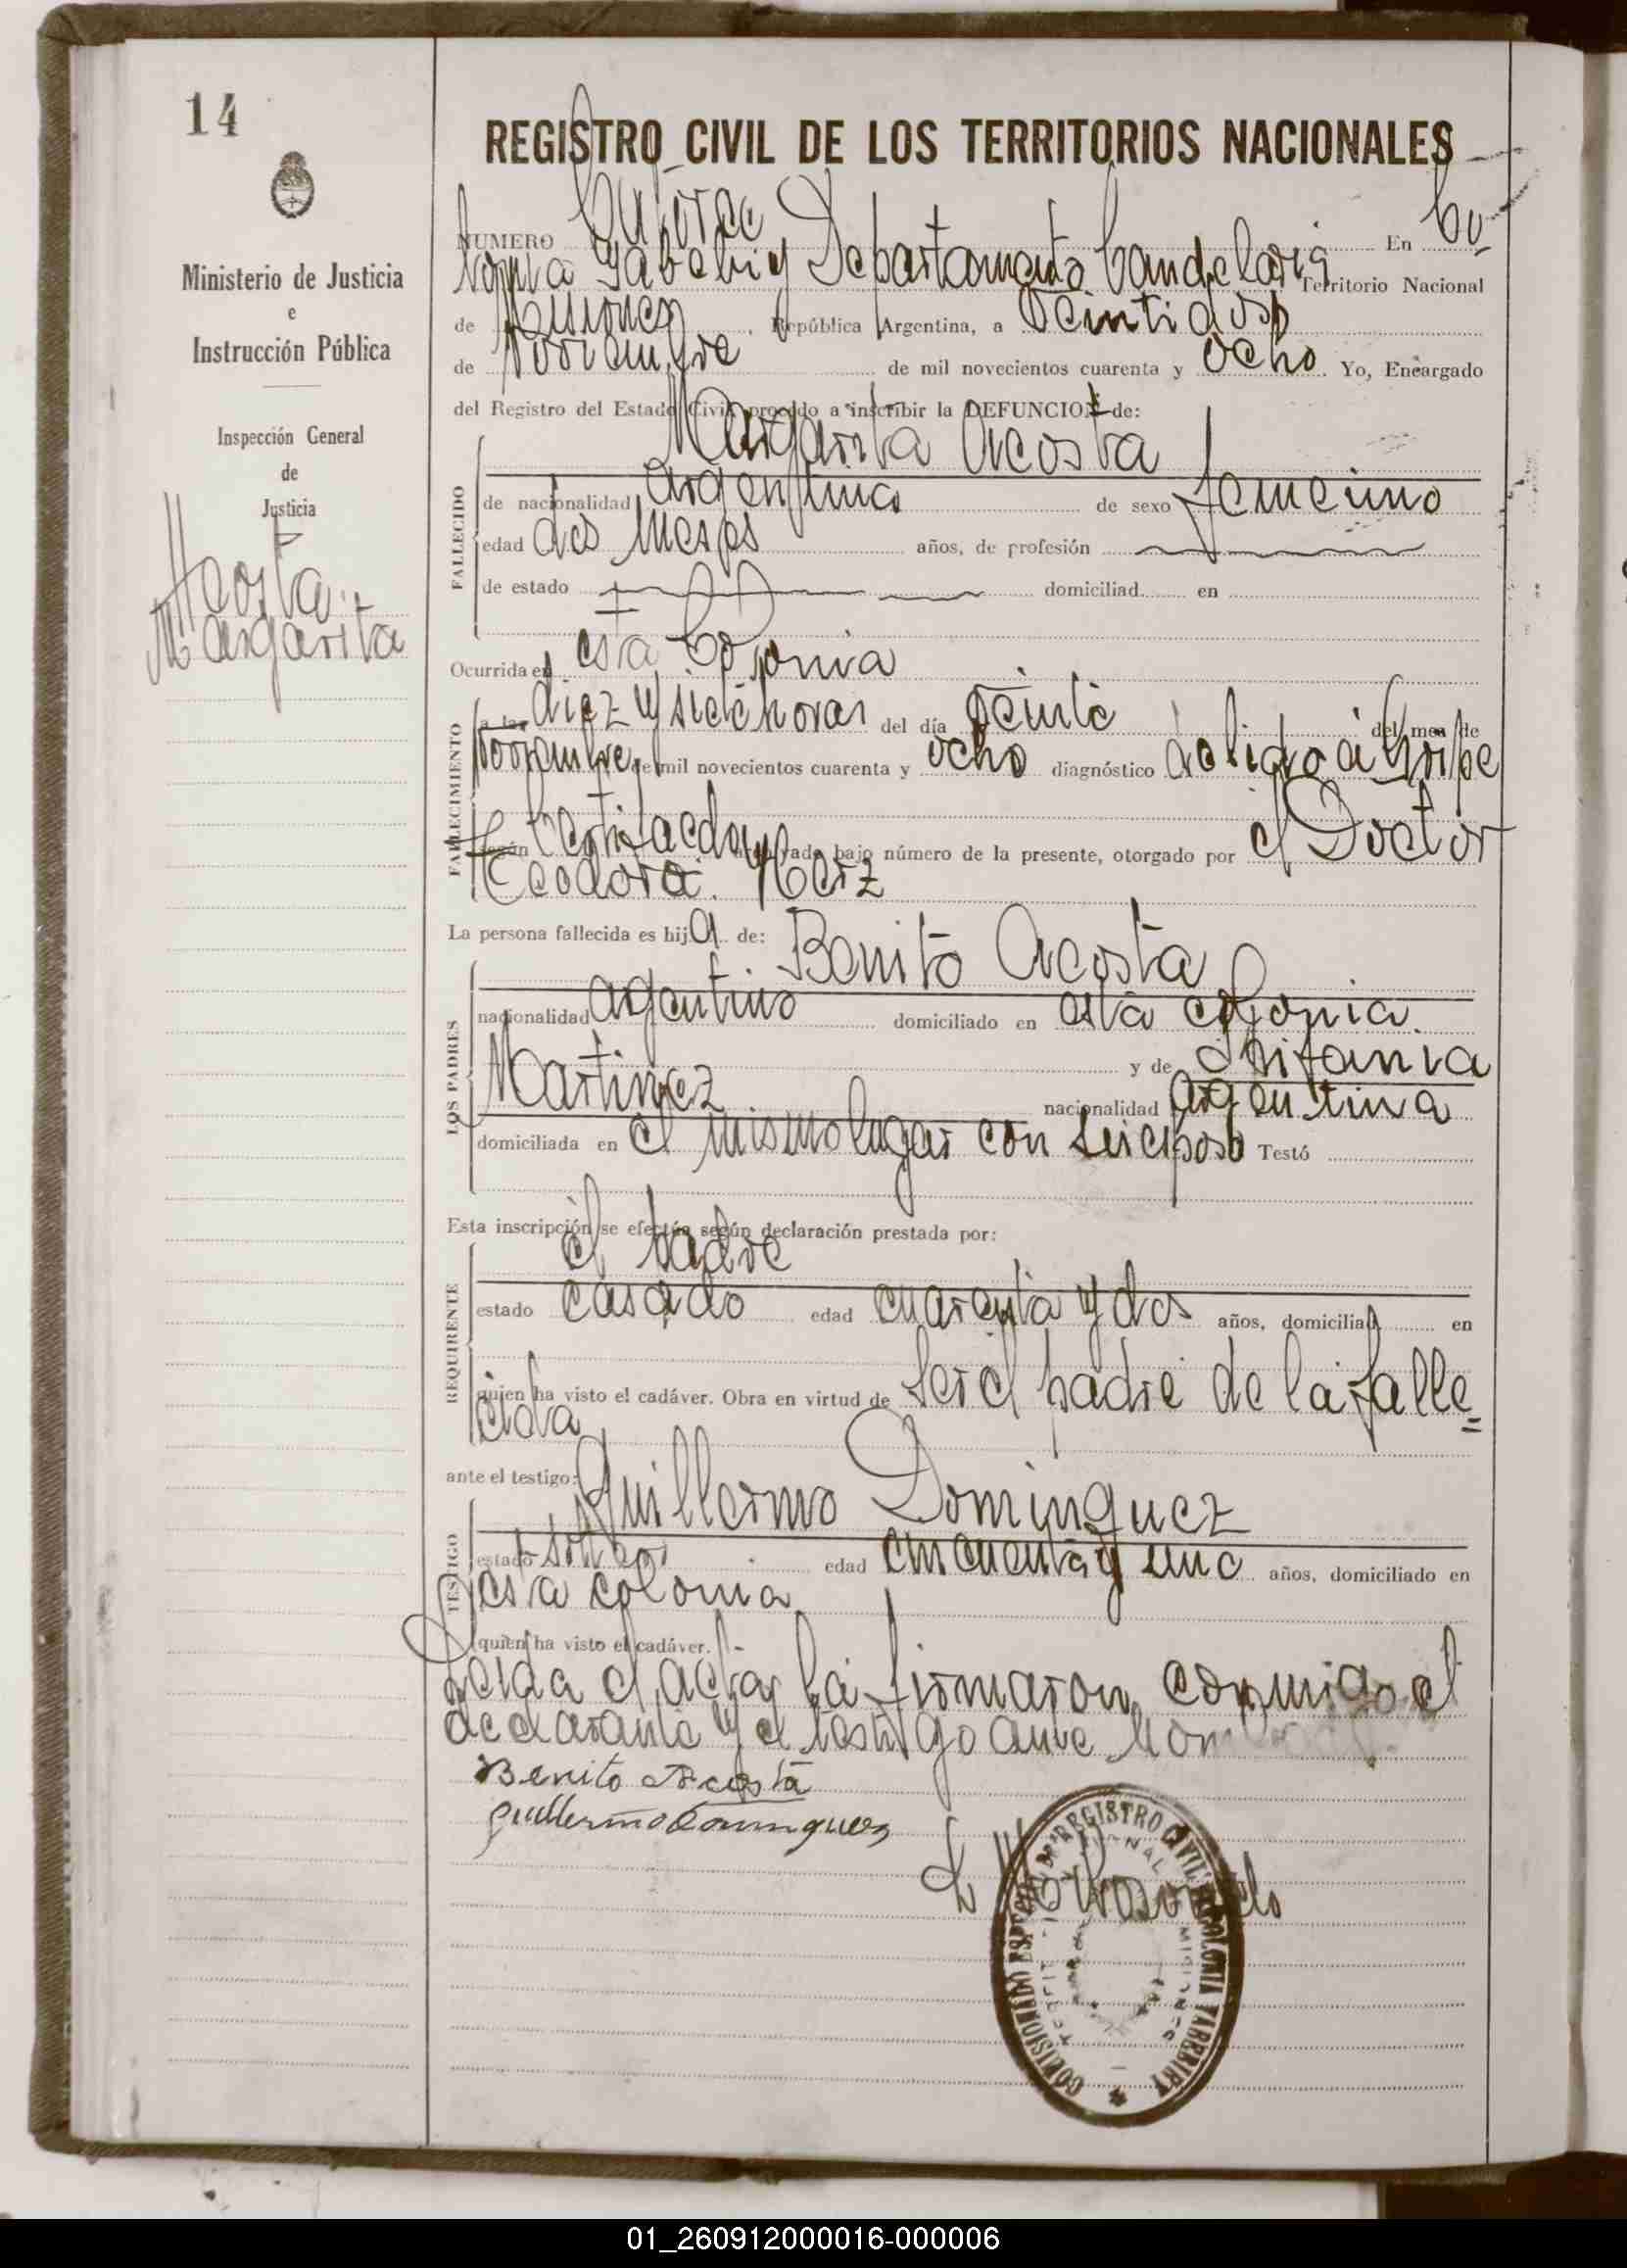 14
Ministerio de Justicia
e
Instrucción Pública
Inspección General
de
Justicia
Acosta
Margarita
REGISTRO CIVIL DE LOS TERRITORIOS NACIONALES
NUMERO Catorce En Co-
lonia Yabebiry Departamento Candelaria Territorio Nacional
de Misiones, República Argentina, a veintidos
de Noviembre de mil novecientos cuarenta y ocho Yo, Encargado
del Registro del Estado Civil, procedo a inscribir la DEFUNCION de:
Margarita Acosta
FALLECIDO
de nacionalidad argentina de sexo femenino
edad dos meses años, de profesión
de estado domiciliad en
Ocurrida en esta Colonia
FALLECIMIENTO
a las diez y siete horas del día veinte del mes de
Noviembre de mil novecientos cuarenta y ocho diagnóstico debido a Gripe
según Certificado bajo número de la presente, otorgado por el Doctor
La persona fallecida es hija de:
Benito Acosta
LOS PADRES
nacionalidad argentino domiciliado en esta colonia.
y de
Martinez nacionalidad argentina
domiciliada en el mismo lugar con su esposo Testó
Esta inscripción se efectúa según declaración prestada por:
el padre
REQUIRENTE
estado casado edad cuarenta y dos años, domiciliad en
quien ha visto el cadáver. Obra en virtud de ser el padre de la falle=
cida
ante el testigo:
Guillermo Dominguez
TESTIGO
estado soltero edad cincuenta y uno años, domiciliado en
esta colonia
quien ha visto el cadáver.
Leida el acta, la firmaron conmigo el
declarante y el testigo ante nombrado.
Benito Acosta
Guillermo Dominguez
COMISIONADO ESPECIAL DE REGISTRO CIVIL COLONIA YABEBIRY
MISIONES
01_260912000016-000006